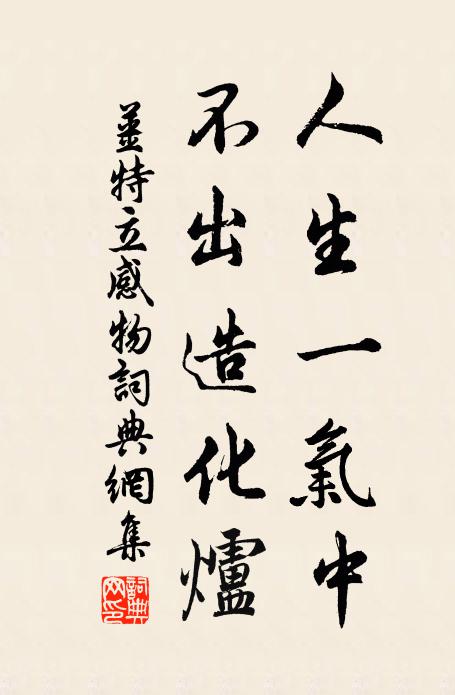 人生一氣中
不出造化爐
薑特立感物詞典網集
詞典网印